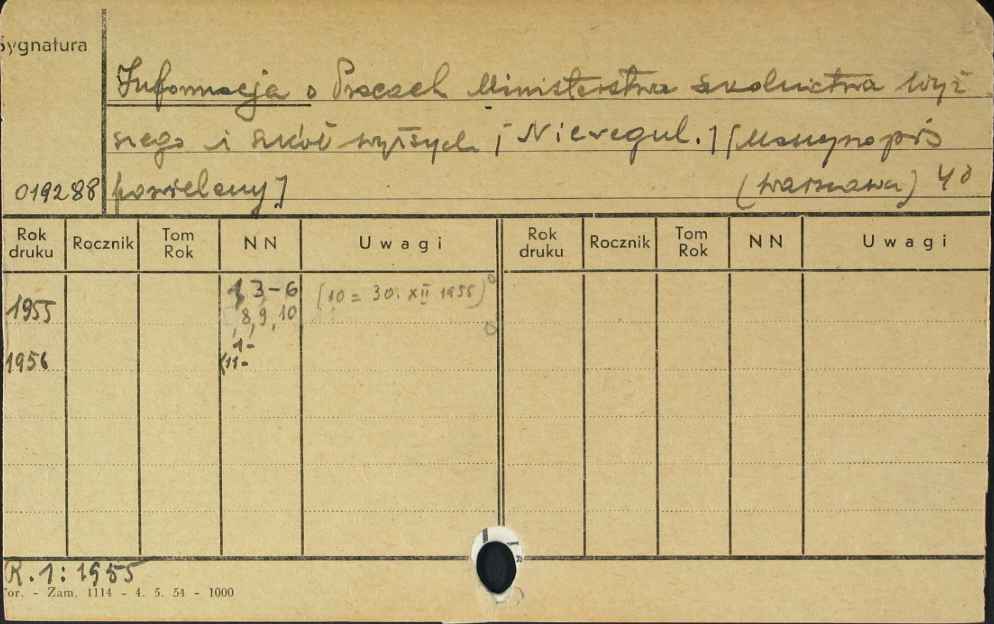 Sygnatura
Informacja o Pracach Ministerstwa szkolnictwa wyż
szego i szkół wyższych [Nieregul.] [Maszynopis
019288 powielany] (Warszawa) 4°
Rok druku Rocznik Tom Rok NN Uwagi Rok druku Rocznik Tom Rok NN Uwagi
1955 1, 3-6 (10 = 30. XII 1955)
8, 9, 10
1-
1956 (11-
R. 1: 1955
or. - Zam. 1114 - 4. 5. 54 - 1000